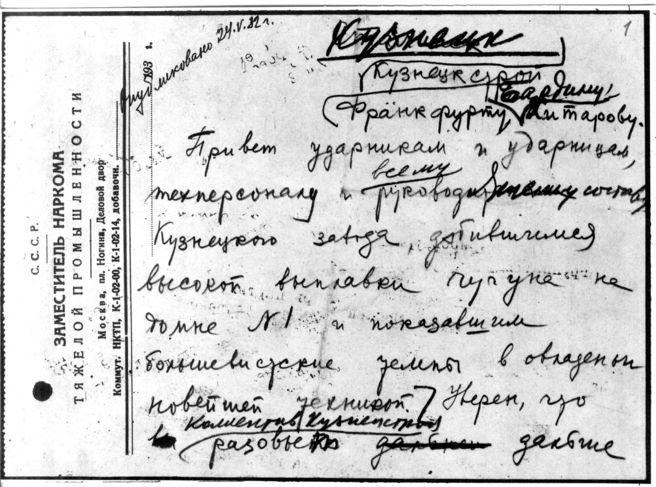 С. С. С. Р.
ЗАМЕСТИТЕЛЬ НАРКОМА
ТЯЖЕЛОЙ ПРОМЫШЛЕННОСТИ
Москва, пл. Ногина, Деловой двор
Коммут. НКТП, К-1-02-00, К-1-02-14, добавочн.
193 г.
Опубликовано 24.V.32 г.
1
Кузнецк
Кузнецкстрой
Бардину
Франкфурту Хитарову.
Привет ударникам и ударницам,
всему
техперсоналу и руководящему составу
Кузнецкого завода добившимся
высокой выплавки чугуна на
домне №1 и показавшим
большевистские темпы в овладении
новейшей техникой. Уверен, что
Коллектив Кузнецкстроя
разовьет дальше